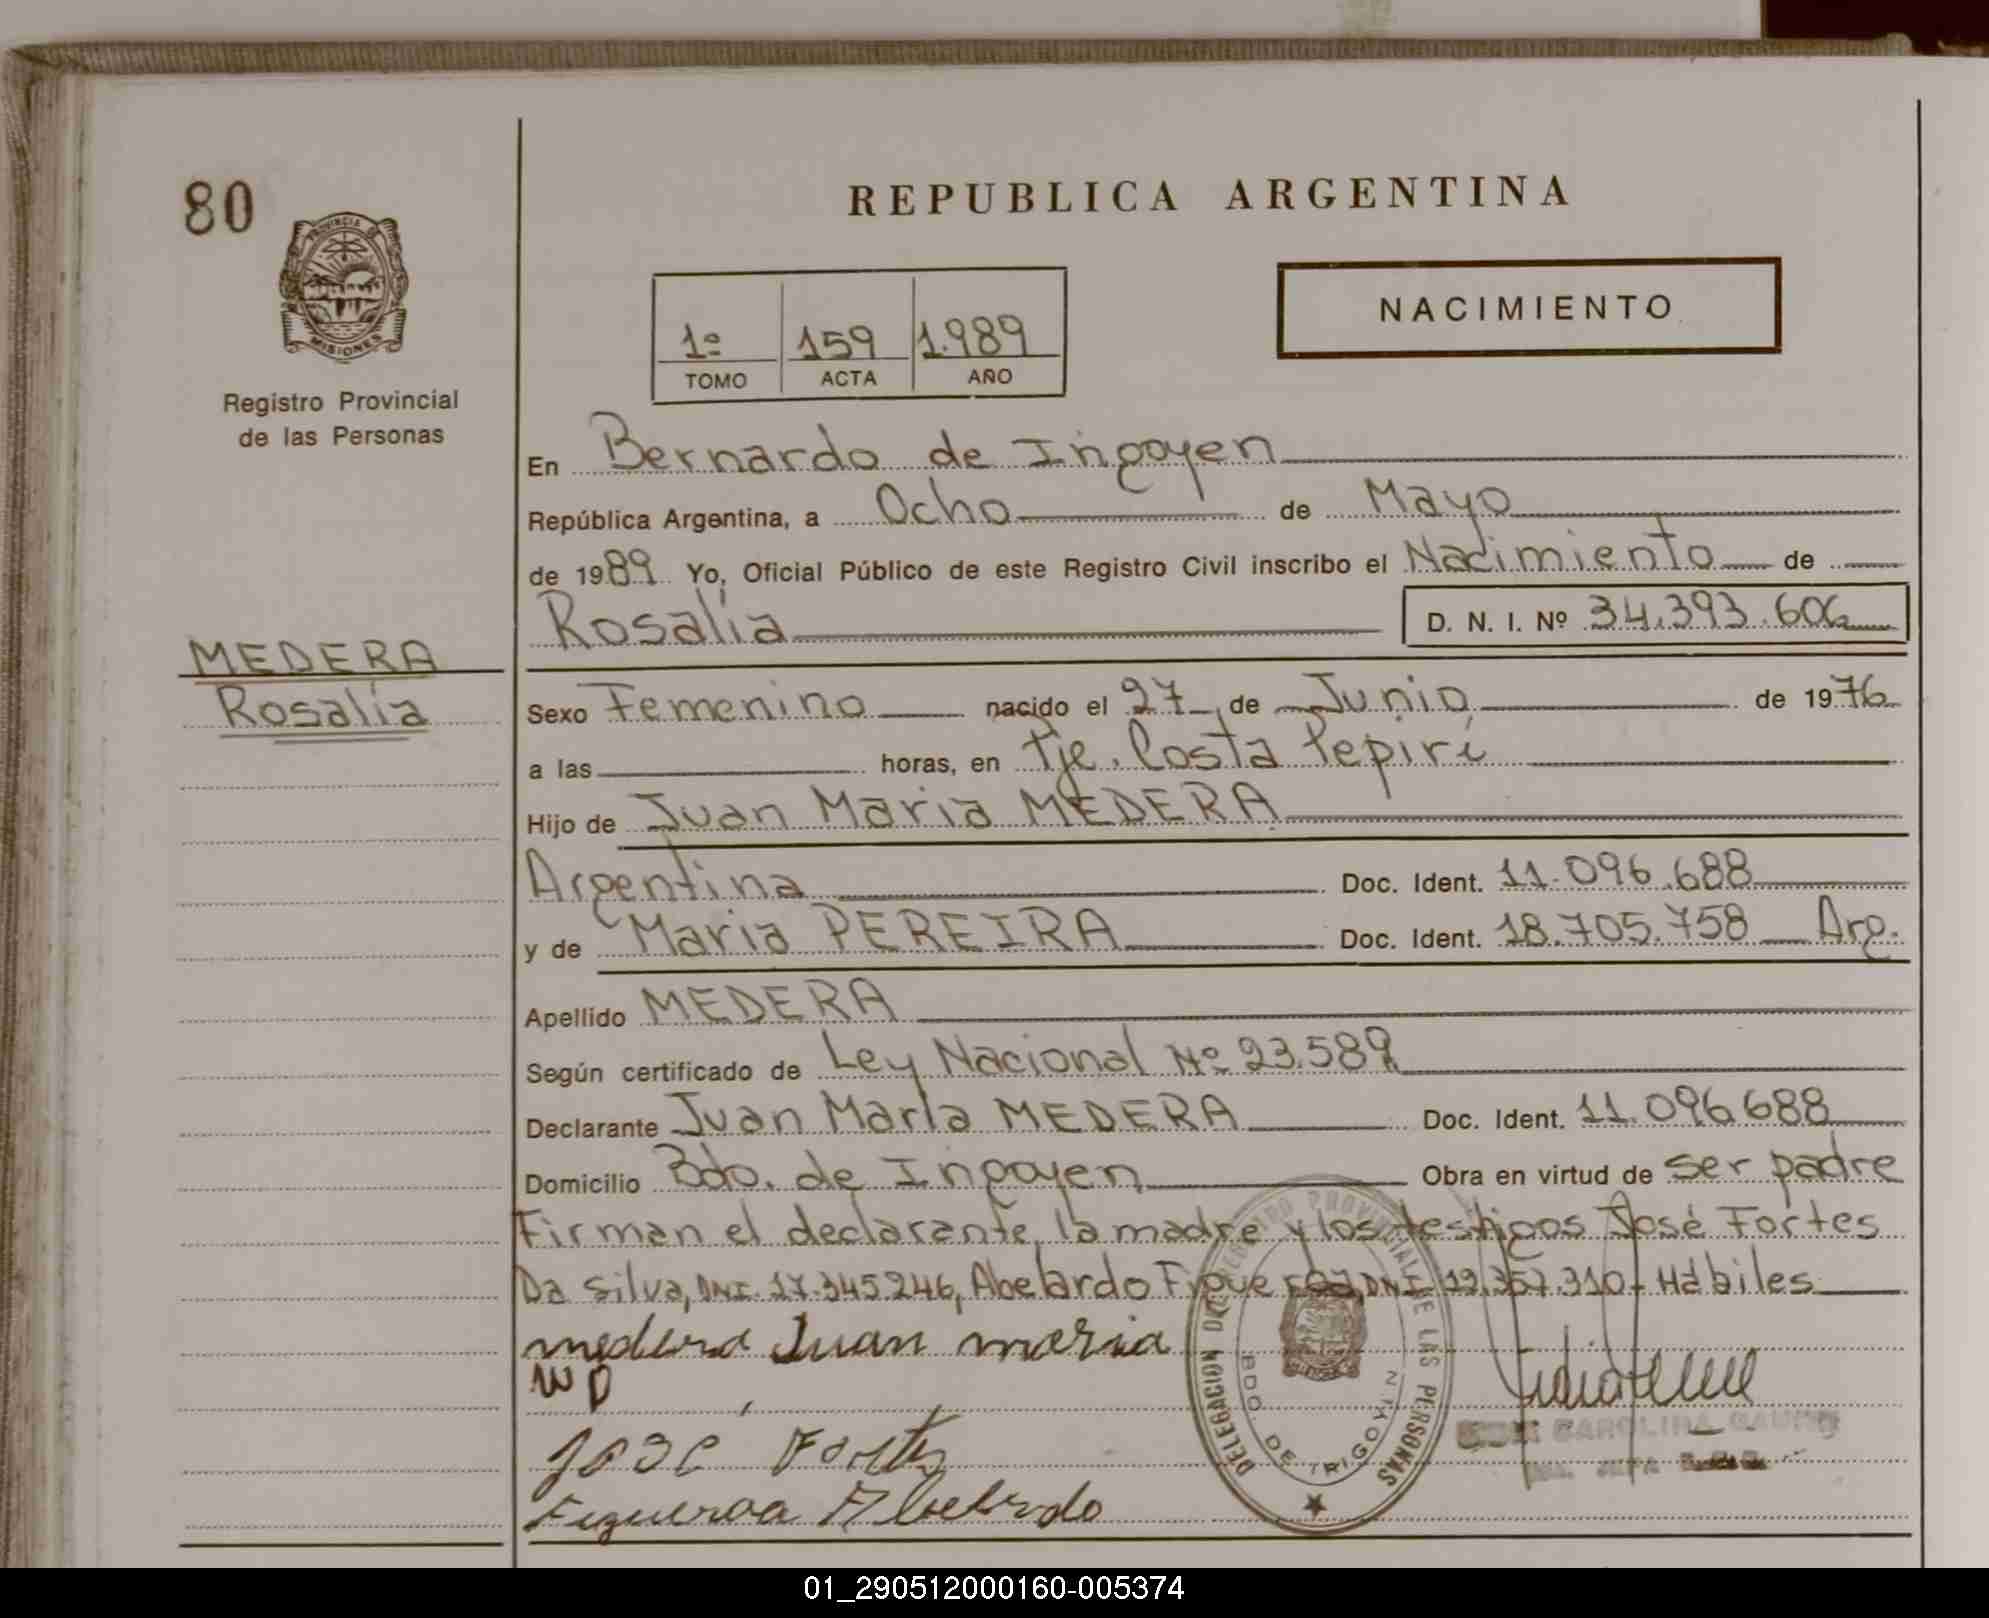 80
PROVINCIA DE
MISIONES
Registro Provincial
de las Personas
REPUBLICA ARGENTINA
NACIMIENTO
1º 159 1.989
TOMO ACTA AÑO
En Bernardo de Irigoyen
República Argentina, a Ocho de Mayo
de 1989 Yo, Oficial Público de este Registro Civil inscribo el Nacimiento de
Rosalía D. N. I. Nº 34.393.606
MEDERA
Rosalía
Sexo Femenino nacido el 27 de Junio de 1976
a las horas, en Pje. Costa Pepirí
Hijo de Juan Maria MEDERA
Argentina Doc. Ident. 11.096.688
y de Maria PEREIRA Doc. Ident. 18.705.758 Arg.
Apellido MEDERA
Según certificado de Ley Nacional Nº 23.589
Declarante Juan María MEDERA Doc. Ident. 11.096.688
Domicilio Bdo. de Irigoyen Obra en virtud de ser padre
Firman el declarante, la madre y los testigos José Fortes
Da Silva, DNI. 17.345.246, Abelardo Figueroa, DNI. 12.357.310 - Hábiles
medera Juan maria
José Fortes
Figueroa Abelardo
DELEGACION DEL REGISTRO PROVINCIAL DE LAS PERSONAS
BDO. DE IRIGOYEN
CAROLINA
JEFA
01_290512000160-005374